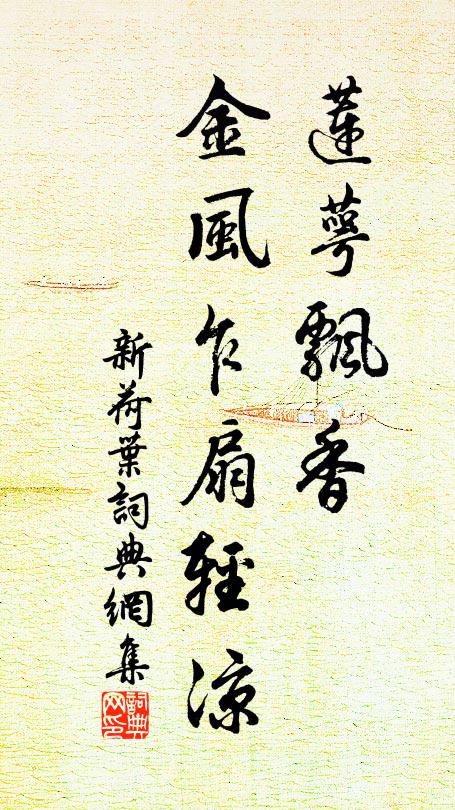 蓮萼飄香
金風乍扇輕涼
新荷葉詞典網集
詞典网印